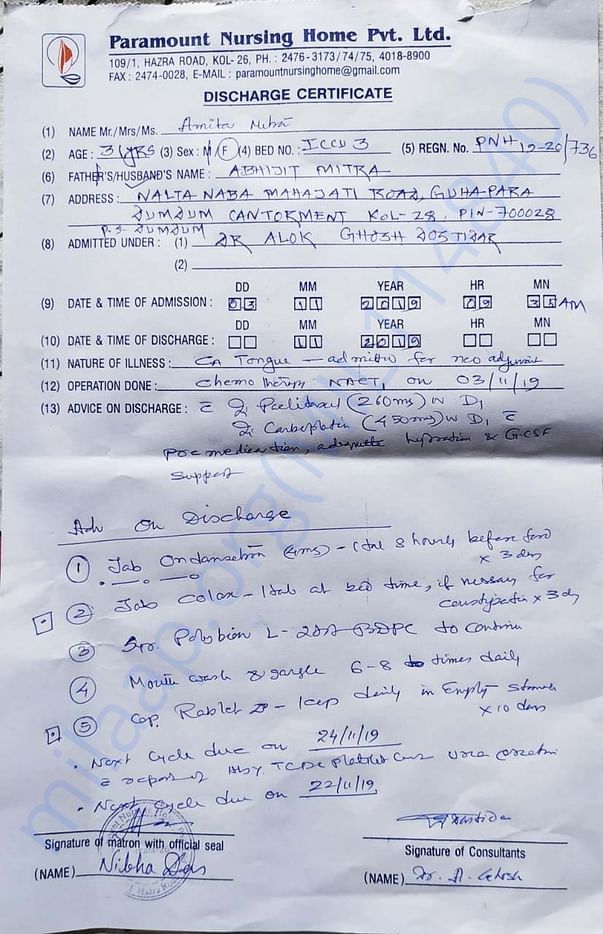 Paramount Nursing Home Pvt. Ltd.
109/1, HAZRA ROAD, KOL- 26, PH. : 2476-3173/74/75, 4018-8900
FAX : 2474-0028, E-MAIL : paramountnursinghome@gmail.com
DISCHARGE CERTIFICATE
(1) NAME Mr./Mrs/Ms. Amita
(2) AGE : 31 YRS (3) Sex : M/F (4) BED NO. : ICCU 3 (5) REGN. No. PNH 19-20/736
(6) FATHER'S/HUSBAND'S NAME : ABHIJIT MITRA
(7) ADDRESS : NALTA NABA MAHAJATI ROAD, GUHA-PARA
DUMDUM CANTORMENT KOL-28, PIN-700028
P.S DUMDUM
(8) ADMITTED UNDER : (1) DR ALOK GHOSH DOSTIDAR
(2)
DD MM YEAR HR MN
(9) DATE & TIME OF ADMISSION : 03 11 2019 09 35 AM
DD MM YEAR HR MN
(10) DATE & TIME OF DISCHARGE : 11 2019
(11) NATURE OF ILLNESS : CA Tongue — admitted for neo adjuvant
(12) OPERATION DONE : chemotherapy NACT, on 03/11/19
(13) ADVICE ON DISCHARGE : Paclitaxel (260mg) IV D1
Carboplatin (450mg) IV D1
Premedication, adequate hydration & G-CSF
support
Adv On Discharge
① Tab Ondansetron (4mg) - 1 tab 8 hours before food
x 3 days
② Tab Colax - 1 tab at bed time, if necessary for
constipation x 3 dy
③ Syr. Polybion L - 2 TSF BDPC to continue
④ Mouth wash & gargle 6-8 times daily
⑤ Cap. Rablet D - 1 cap daily in Empty stomach
x 10 days
• Next Cycle due on 24/11/19
report of Hb%, TC DC Platelet Urea creatin
• Next cycle due on 22/11/19.
Signature of matron with official seal
Signature of Consultants
(NAME) Nibha Das
(NAME) Dr. A. Ghosh
milaap.org